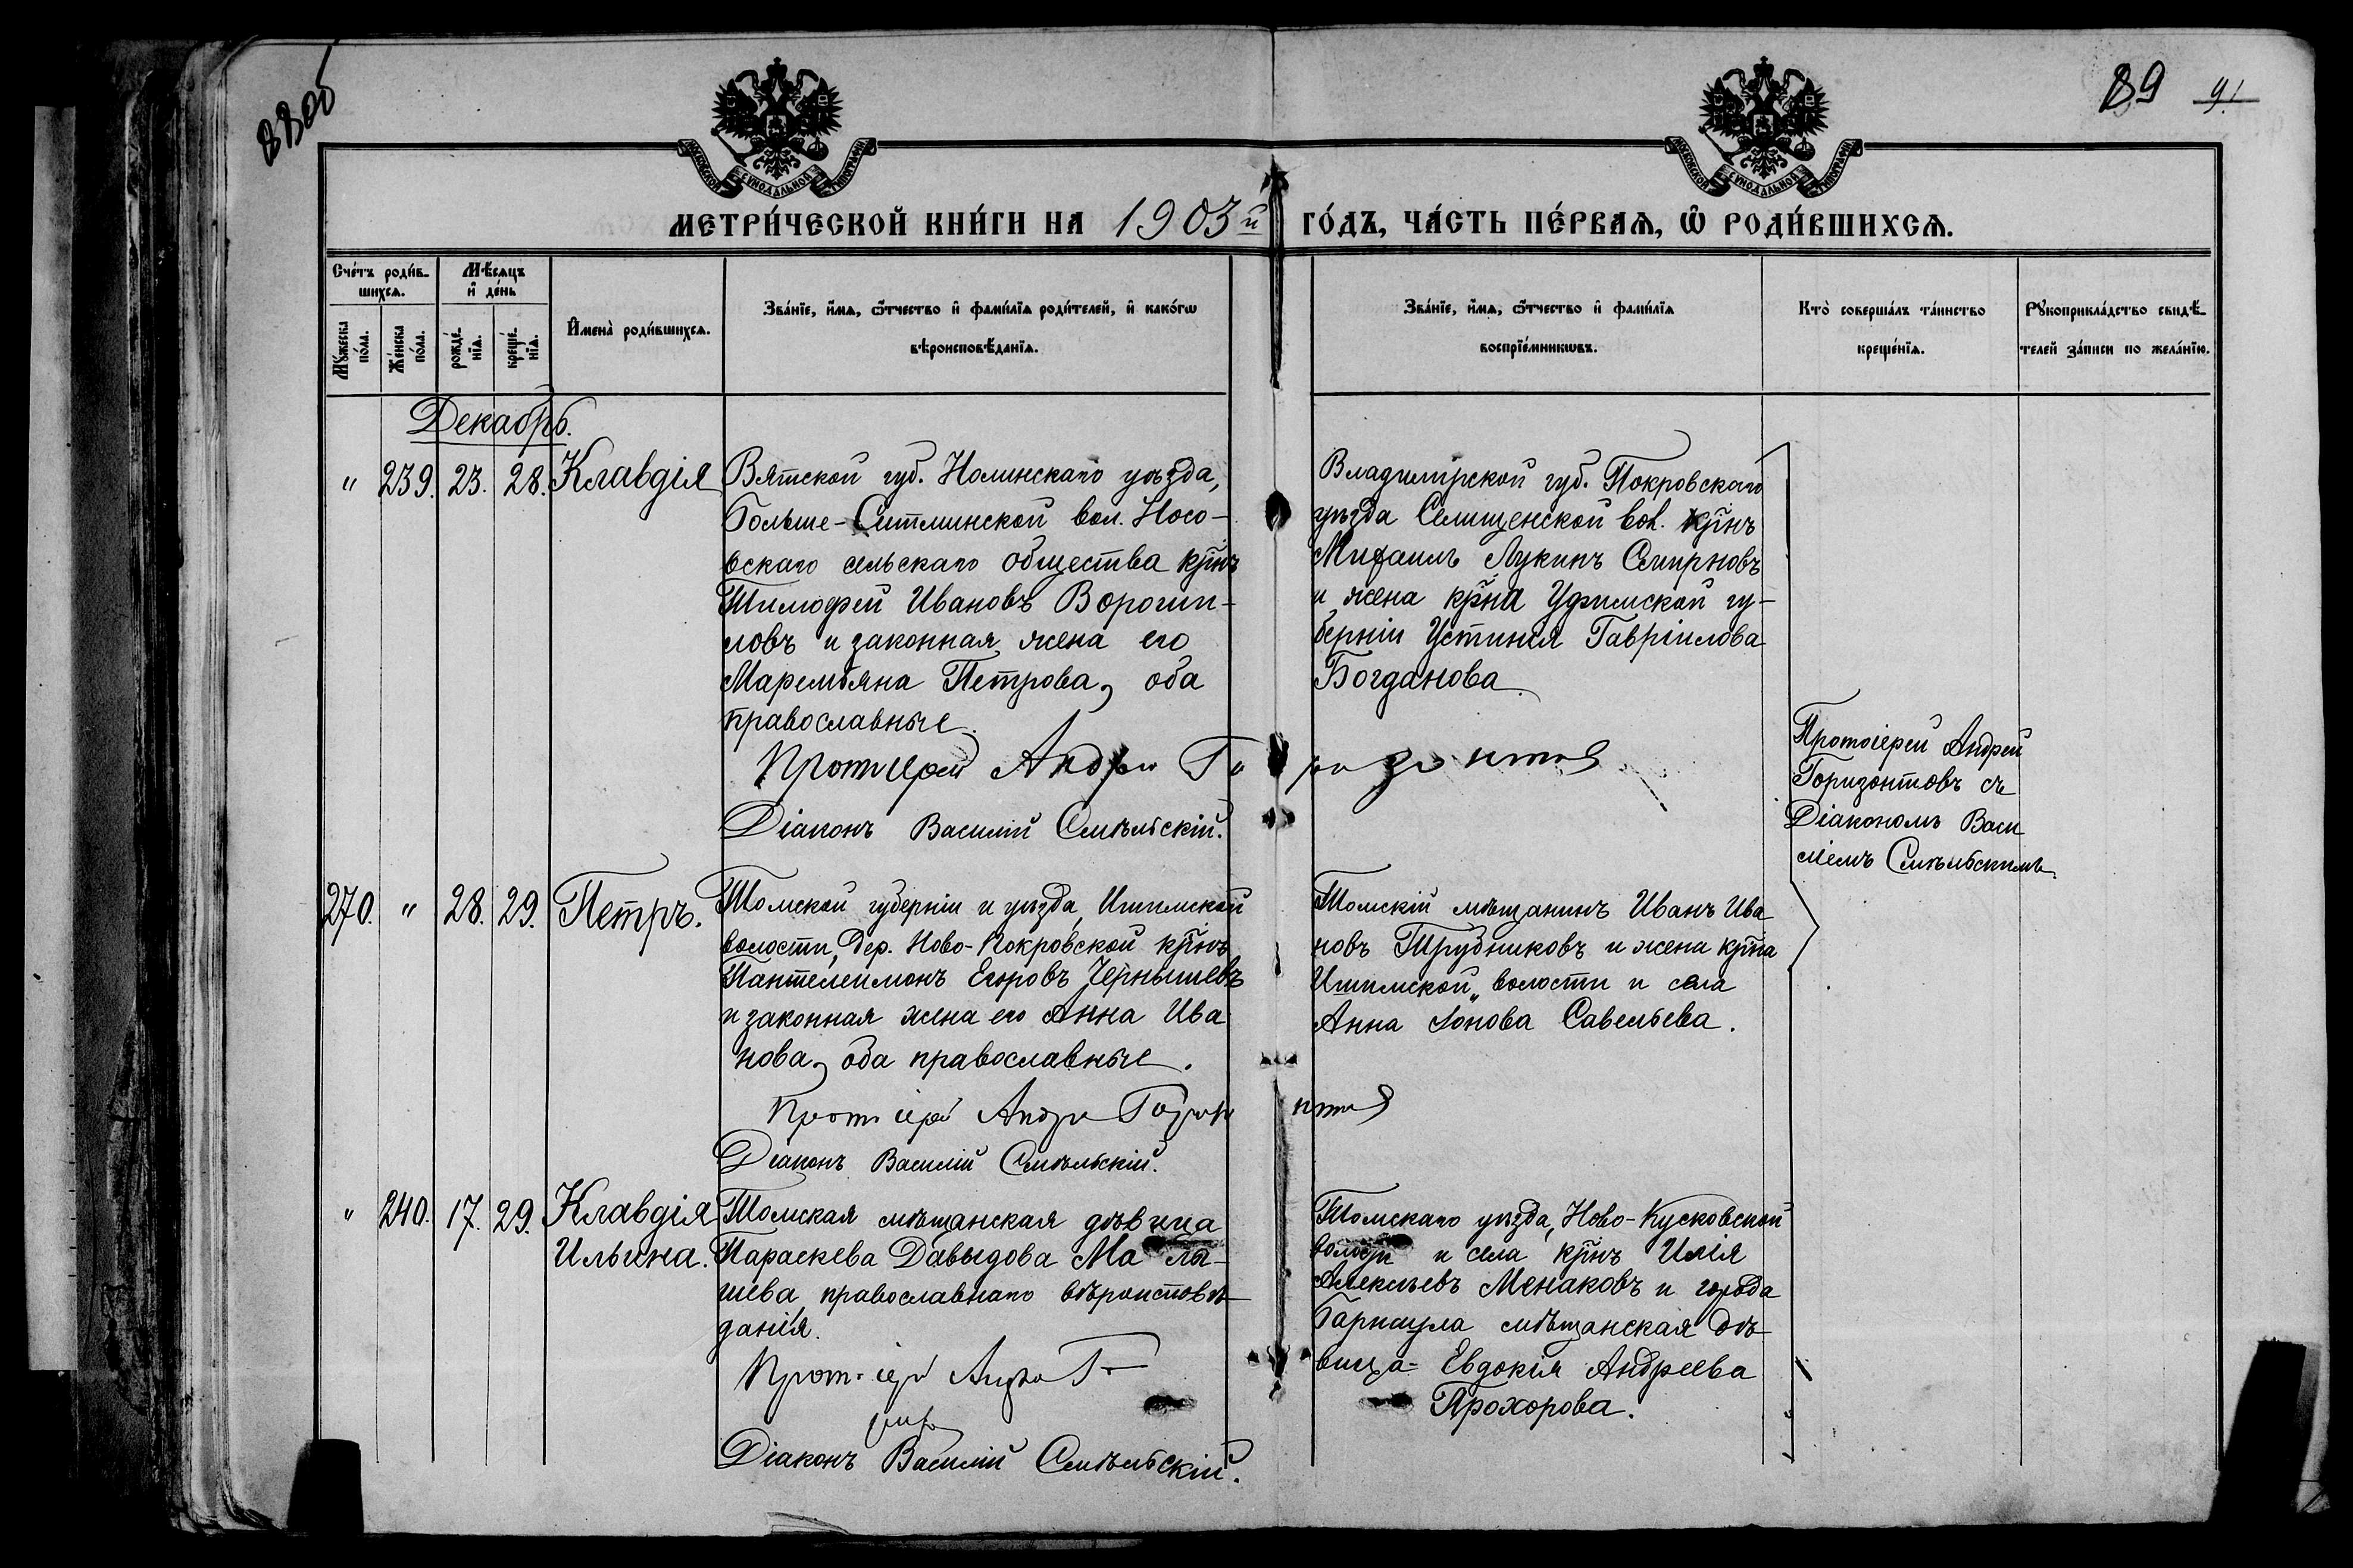 89 91
МОСКОВСКОЙ СѴНОДАЛЬНОЙ ТИПОГРАФІИ
МОСКОВСКОЙ СѴНОДАЛЬНОЙ ТИПОГРАФІИ
МЕТРИ́ЧЕСКОЙ КНИ́ГИ НА 1903й ГО́ДЪ, ЧА́СТЬ ПЕ́РВАѦ, Ѡ РОДИ́ВШИХСѦ.
Сче́тъ роди́в-
шихсѧ.
Мѣ́сѧцъ
и҆ де́нь
Мꙋ́жеска
по́ла.
Же́нска
по́ла.
рожде́-
нїѧ.
креще́-
нїѧ.
И҆мена̀ роди́вшихсѧ.
Зва́нїе, и҆́мѧ, ѻ҆́тчество и҆ фами́лїѧ роди́телей, и҆ како́гѡ
вѣроисповѣ́данїѧ.
Зва́нїе, и҆́мѧ, ѻ҆́тчество и҆ фами́лїѧ
воспрїе́мникѡвъ.
Кто̀ соверша́лъ та́инство
креще́нїѧ.
Рꙋкоприкла́дство свидѣ́-
телей за́писи по жела́нїю.
Декабрь.
" 239. 23. 28. Клавдія
Вятской губ. Нолинскаго уѣзда,
Больше-Ситминской вол. Носо-
вскаго сельскаго общества крнъ
Тимофей Ивановъ Ворожи-
ловъ и законная жена его
Маремьяна Петрова, оба
православные.
Протоіерей Андрей Горизонтовъ
Діаконъ Василій Смѣльскій.
Владимірской губ. Покровскаго
уѣзда Селищенской вол. крнъ
Михаилъ Лукинъ Смирновъ
и жена крна Уфимской гу-
берніи Устинія Гавріилова
Богданова.
Протоіерей Андрей
Горизонтовъ съ
Діакономъ Васи
ліемъ Смѣльскимъ.
270. " 28. 29. Петръ.
Томской губерніи и уѣзда, Ишимской
волости, дер. Ново-Покровской крнъ
Пантелеимонъ Егоровъ Чернышевъ
и законная жена его Анна Ива
нова, оба православные.
Протоіерей Андрей Горизонтовъ
Діаконъ Василій Смѣльскій.
Томскій мѣщанинъ Иванъ Ива
новъ Трубниковъ и жена крна
Ишимской волости и села
Анна Іонова Савельева.
" 240. 17. 29. Клавдія
Ильина.
Томская мѣщанская дѣвица
Параскева Давыдова Ма лы-
шева, православнаго вѣроисповѣ-
данія.
Протоіерей Андрей
Діаконъ Василій Смѣльскій.
Томскаго уѣзда, Ново-Кусковской
волости и села крнъ Илія
Алексѣевъ Менаковъ и города
Барнаула мѣщанская дѣ-
вица Евдокія Андреева
Прохорова.